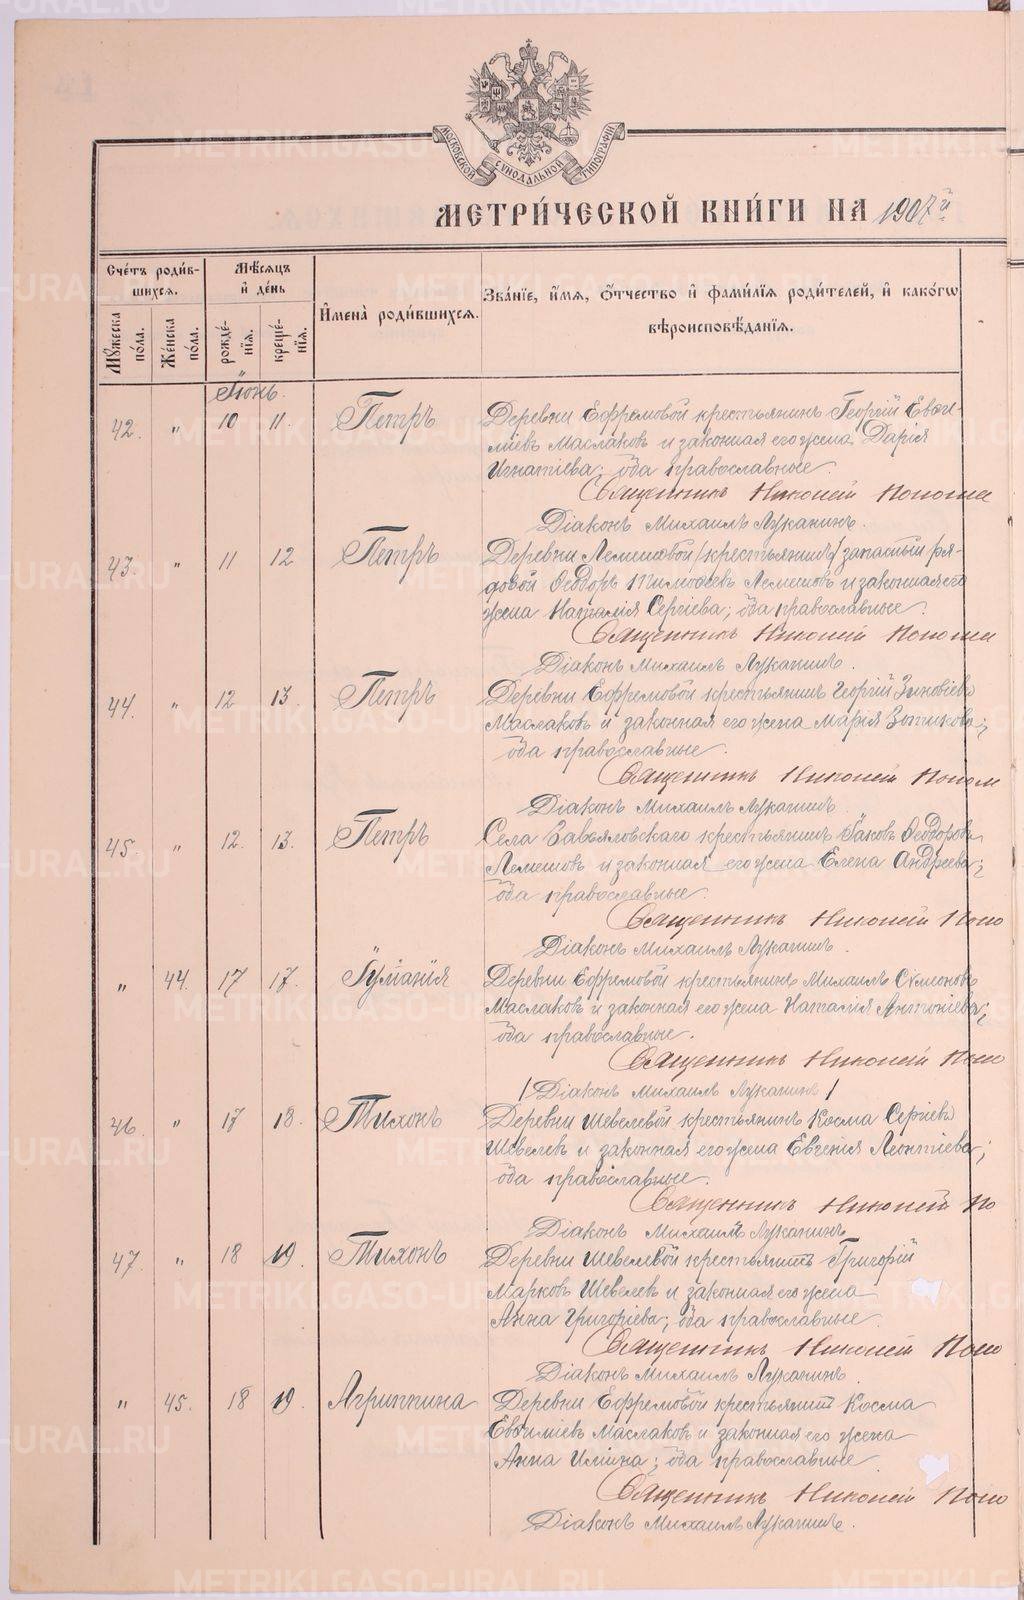 МОСКОВСКОЙ СѴНОДАЛЬНОЙ ТИПОГРАФІИ
МЕТРИ́ЧЕСКОЙ КНИ́ГИ НА 1907й
Сче́тъ роди́в-
шихся.
Мѣ́сяцъ
и҆ де́нь
И҆мена̀ роди́вшихся.
Зва́нїе, и҆́мѧ, ѻ҆́тчество и҆ фами́лїѧ роди́телей, и҆ како́гѡ
вѣроисповѣ́данїѧ.
Мꙋ́жеска по́ла.
Же́нска по́ла.
рожде́-
нїѧ.
креще́-
нїѧ.
Іюнь.
42. " 10 11. Петръ Деревни Ефремовой крестьянинъ Георгій Евѳи-
міевъ Маслаковъ и законная его жена Дарія
Игнатіева; оба православные.
Священникъ Николай
Діаконъ Михаилъ Луканинъ.
43. " 11 12 Петръ Деревни Лемешовой (крестьянинъ) запасный ря-
довой Ѳеодоръ Тимоѳеевъ Лемешовъ и законная его
жена Наталія Сергіева; оба православные.
Священникъ Николай
Діаконъ Михаилъ Луканинъ.
44. " 12 13. Петръ Деревни Ефремовой крестьянинъ Георгій Зиновіевъ
Маслаковъ и законная его жена Марія Зотикова;
оба православные.
Священникъ Николай
Діаконъ Михаилъ Луканинъ.
45. " 12. 13. Петръ Села Завьяловскаго крестьянинъ Іаковъ Ѳеодоровъ
Лемешовъ и законная его жена Елена Андреева;
оба православные.
Священникъ Николай
Діаконъ Михаилъ Луканинъ.
" 44. 17 17. Іуліанія Деревни Ефремовой крестьянинъ Михаилъ Сѵмеоновъ
Маслаковъ и законная его жена Наталія Антоніева;
оба православные.
Священникъ Николай
/Діаконъ Михаилъ Луканинъ/
46. " 17 18. Тихонъ Деревни Шевелевой крестьянинъ Косма Сергіевъ
Шевелевъ и законная его жена Евгенія Леонтіева;
оба православные.
Священникъ Николай По
Діаконъ Михаилъ Луканинъ
47. " 18 19. Тихонъ Деревни Шевелевой крестьянинъ Григорій
Марковъ Шевелевъ и законная его жена
Анна Григоріева; оба православные.
Священникъ Николай
Діаконъ Михаилъ Луканинъ.
" 45. 18 19. Агриппина Деревни Ефремовой крестьянинъ Косма
Евѳиміевъ Маслаковъ и законная его жена
Анна Ильина; оба православные.
Священникъ Николай
Діаконъ Михаилъ Луканинъ.
METRIKI.GASO-URAL.RU